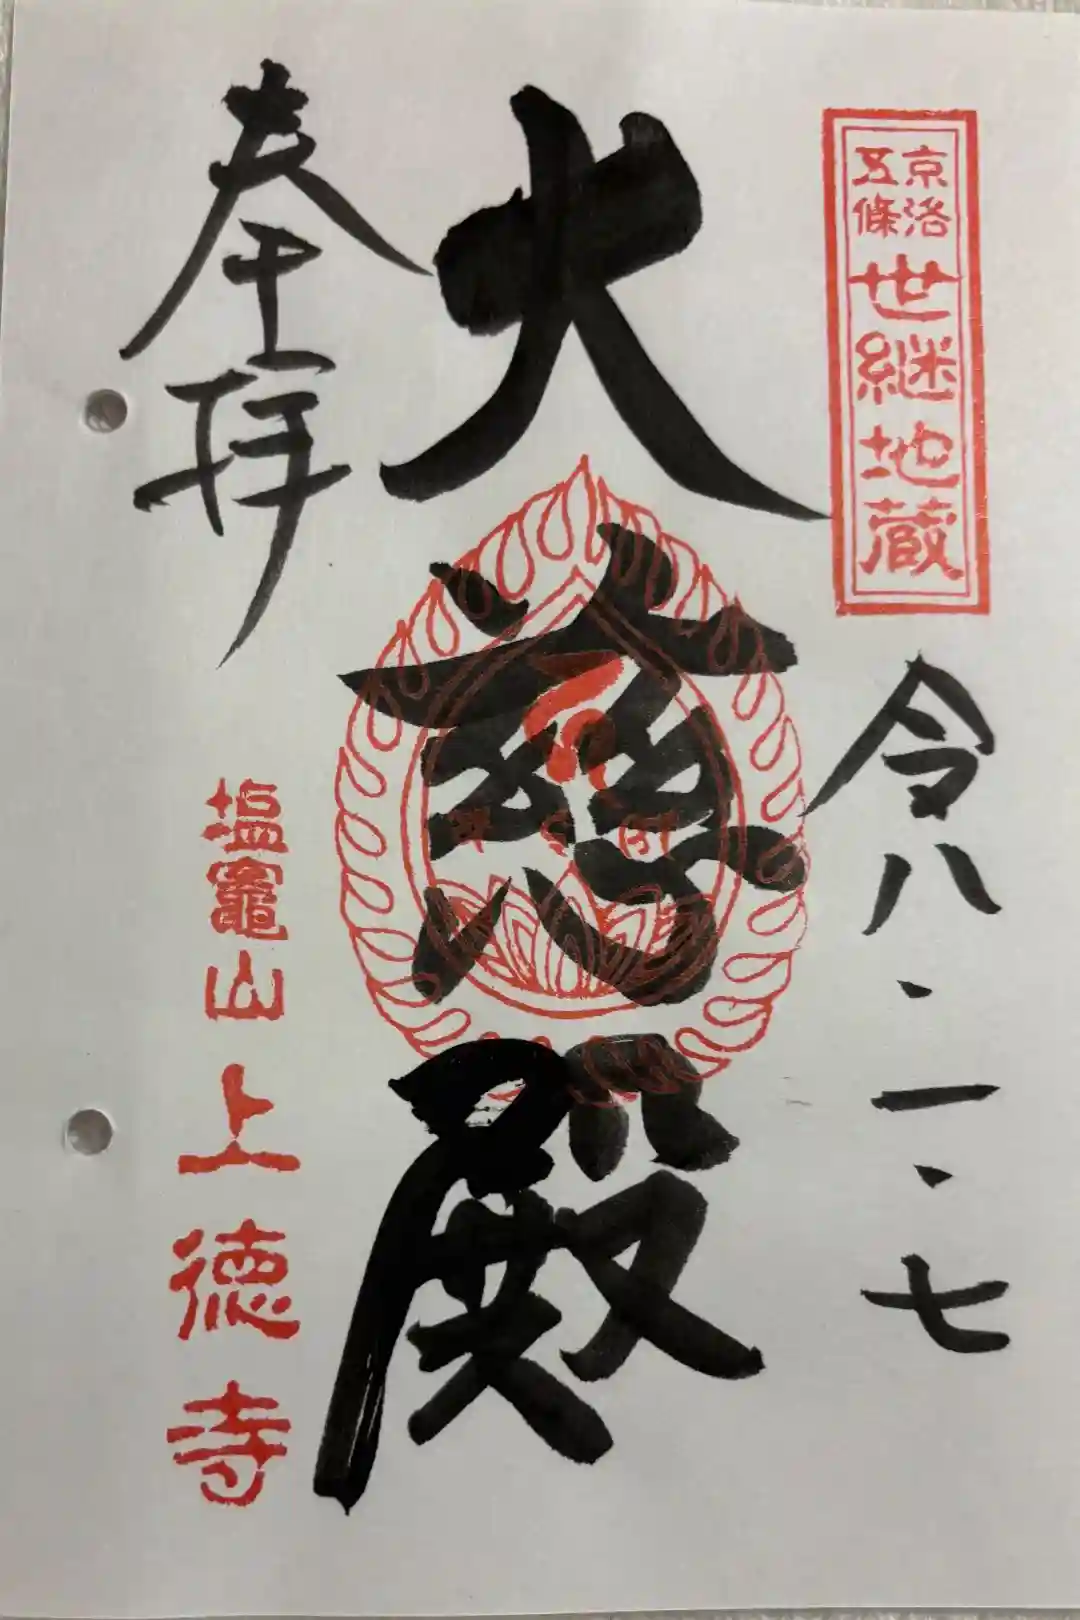 京洛
五條
世継地蔵
令八・一・七
大慈殿
奉拝
塩竈山
上徳寺